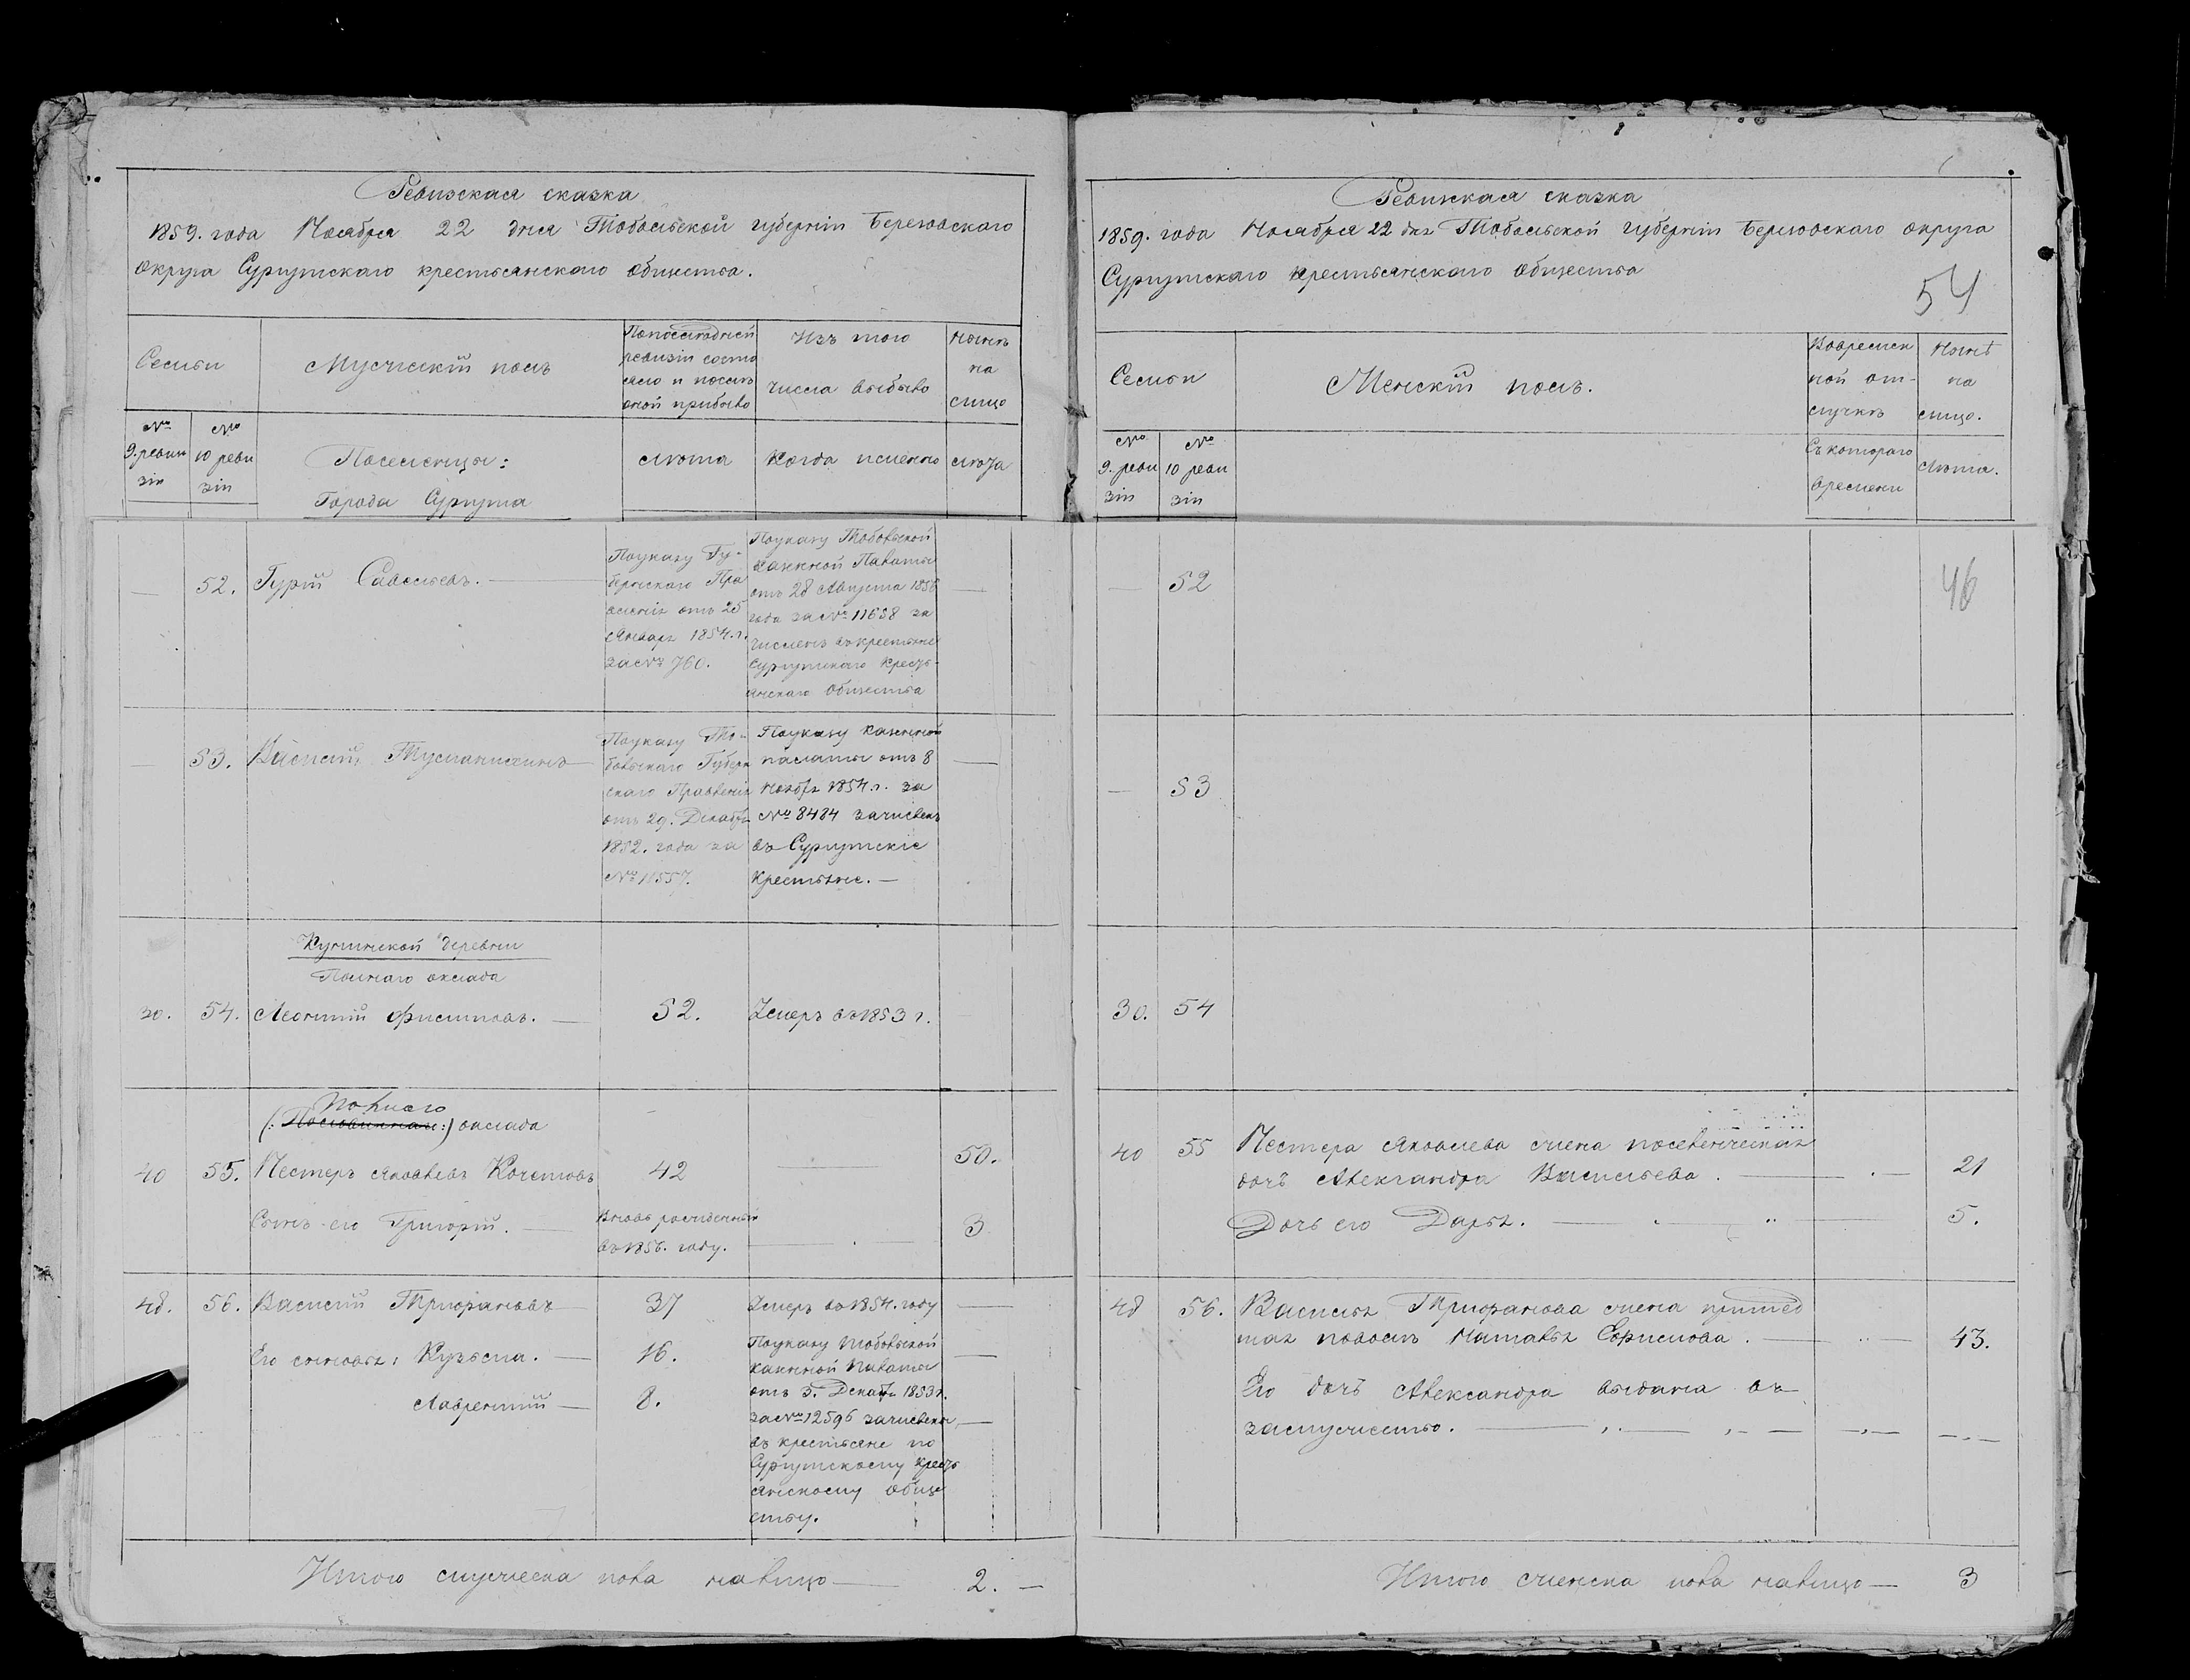 Ревизская сказка
1859. года Ноября 22 дня Тобольской губерніи Березовского
округа Сургутскаго крестьянскаго общества.
Семьи
Мужескій полъ
По последней
ревизіи состо
яло и после
оной прибыло
Изъ того
числа выбыло
Ныне
на
лицо
№
9. реви
зіи
№
10 реви
зіи
Поселенцы:
Города Сургута
лета
Когда именно
лета
52. Гурій Савельевъ. —
По указу Гу-
бернскаго Пра
вленія отъ 25
Января 1854. г.
за № 760.
По указу Тобольской
Казенной Палаты
отъ 28 Августа 1856
года за № 11658 за
численъ въ крестьяне
Сургутскаго кресть-
янскаго общества
53. Василій
По указу То-
больскаго Губерн
скаго Правленія
отъ 29. Декабря
1852. года за
№ 11557.
По указу Казенной
палаты отъ 8
Ноября 1854. г. за
№ 8484 зачисленъ
въ Сургутскіе
крестьяне. —
деревни
Полнаго оклада
30. 54. Леонтій Филиповъ. —
52.
Умеръ въ 1853 г.
Полнаго
(: Половиннаго :) оклада
40 55. Нестеръ Яковлевъ
42
50.
Сынъ его Григорій. —
Вновь рожденный
въ 1856. году.
3
48. 56. Василій Трифановъ
37
Умеръ въ 1854. году
Его сыновья: Кузьма. —
16.
Лаврентій —
8.
По указу Тобольской
казенной Палаты
отъ 3. Декабря 1853 г.
за № 12596 зачислены
въ крестьяне по
Сургутскому кресть
янскому обще
ству.
Итого мужеска пола на лицо — 2. —
Ревизская сказка
1859. года Ноября 22 дня Тобольской губерніи Березовскаго округа
Сургутскаго крестьянскаго общества
54
Семьи
Женскій полъ.
Во времен
ной от-
лучке
Ныне
на
лицо.
№
9. реви
зіи
№
10 реви
зіи
Съ котораго
времени
лета.
52
46
53
30. 54
40 55 Нестера Яковлева жена поселенческая
дочь Александра Васильева. — 21
Дочь его Дарья. — 5.
48 56. Василья Трифанова жена
Наталья — 43.
Его дочь Александра выдана въ
замужество. —
Итого женска пола на лицо — 3